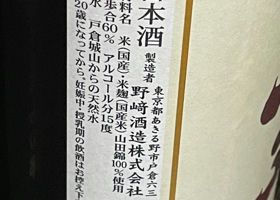 本酒
製造者
東京都あきる野市戸倉六三
野﨑酒造株式会
料名 米(国産)・米麹(国産米)山田錦100%使用
歩合60% アルコール分15度
水 戸倉城山からの天然水
20歳になってから。妊娠中・授乳期の飲酒はお控え下